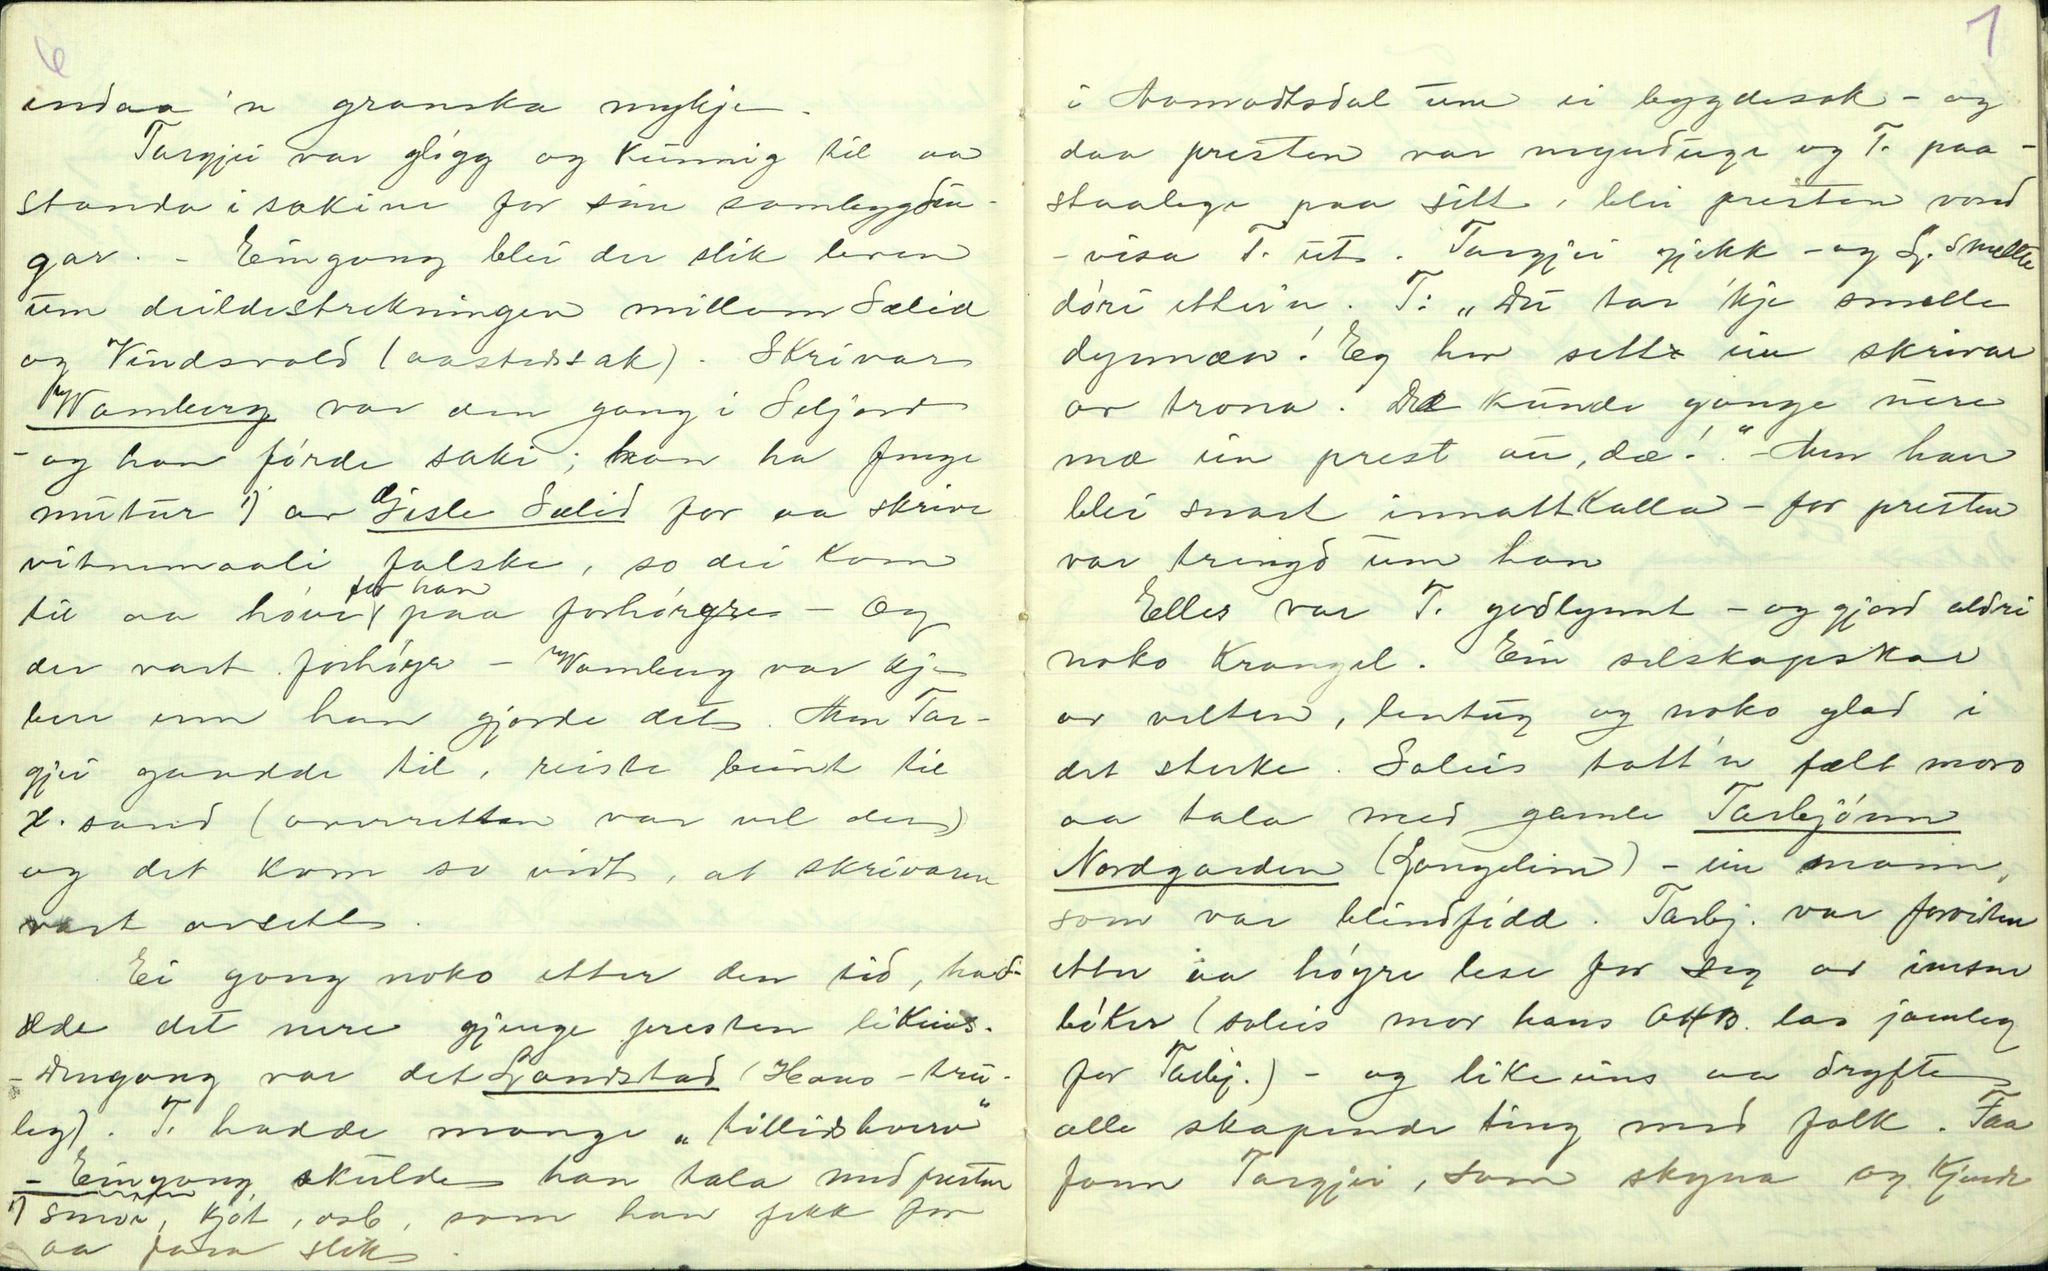 6
endaa 'n granska mykje.
Targjei var gløgg og kunnig til aa
standa i sakine for sine sambygdin-
gar. - Eingong blei der slik leven
um deildestrekningen millom Sælid
og Vindsvold (aastedssak). Skrivar
Wamberg var den gong i Seljord
- og han førde saki; han ha fenge
mutur 1) av Gisle Sælid for aa skrive
vitnemaali falske, so dei kom
til aa høve for han paa forhøyre - Og
der vart forhøyr - Wamberg var kje
bere enn han gjorde det. Men Tar-
gjei gandde til, reiste beint til
K.sand (overretten var vel der)
og det kom so vidt, at skrivaren
vart avsett.
Ei gong noko etter den tid, had-
de det nere gjenge presten likeins.
- Dengong var det Landstad (Hans - tru-
leg). T. hadde mange "tillidshverv"
- Eingong skulde han tala med presten
1) smør, kjøt, osb, som han fekk for
aa fara slik.
7
i Aamodtsdal um ei bygdesak - og
daa presten var mynduge og T. paa-
staalege paa sitt, blei presten vond
- visa T. ut. Targjei gjekk - og L. smelte
døri etter'n. T: "Du tar 'kje smelle
dynnæn! Eg hev sett ein skrivar
av trona. Dæ kunde gange nere
mæ ein prest au, dæ!" - Men han
blei snart innatt kalla - for presten
var tringd um han
Elles var T. godlynnt - og gjord aldri
noko krangel. Ein selskapskar
av velten, lentug og noko glad i
det sterke. Soleis tott'n fælt moro
aa tala med gamle Tarbjønn
Nordgarden (Langelim) - ein mann,
som var blindfødd. Tarbj. var forviten
etter aa høyre lese for seg av imsne
bøker (soleis mor hans OHB. las jamleg
for Tarbj.) - og likeins aa drøfte
alle skapende ting med folk. Faa
fann Targjei, som skyna og kjende